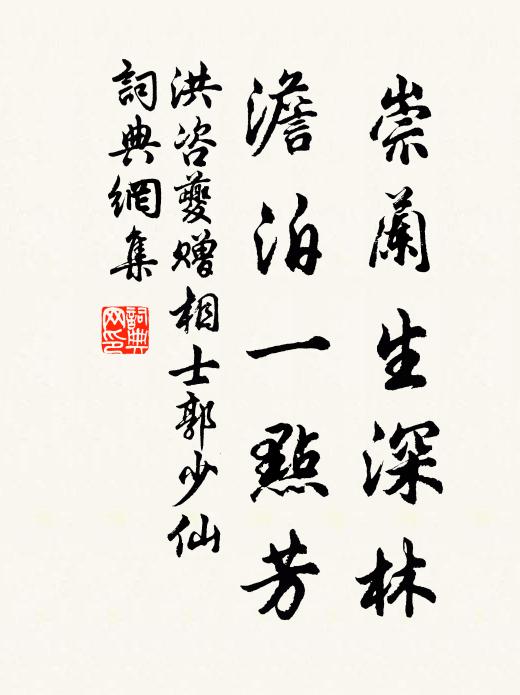 崇蘭生深林
澹泊一點芳
洪咨夔贈相士郭少仙
詞典網集
詞典网印